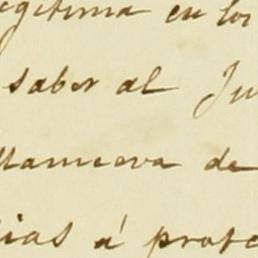 legitima en los
saber al Ju
llanueva de
ias á prote